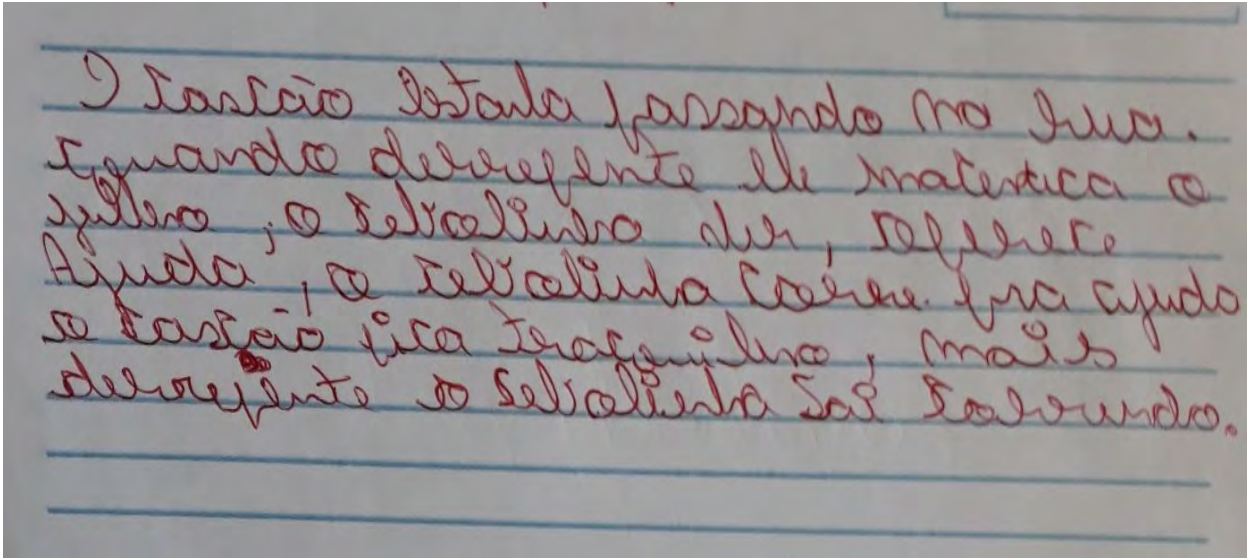 O Cascão estava passando na rua.
quando derrepente ele
o sebolinha diz,
Ajuda, o sebolinha corre pra ajuda
o cascão fica tracquilho, mais
derrepente o sebolinha sai corrundo.